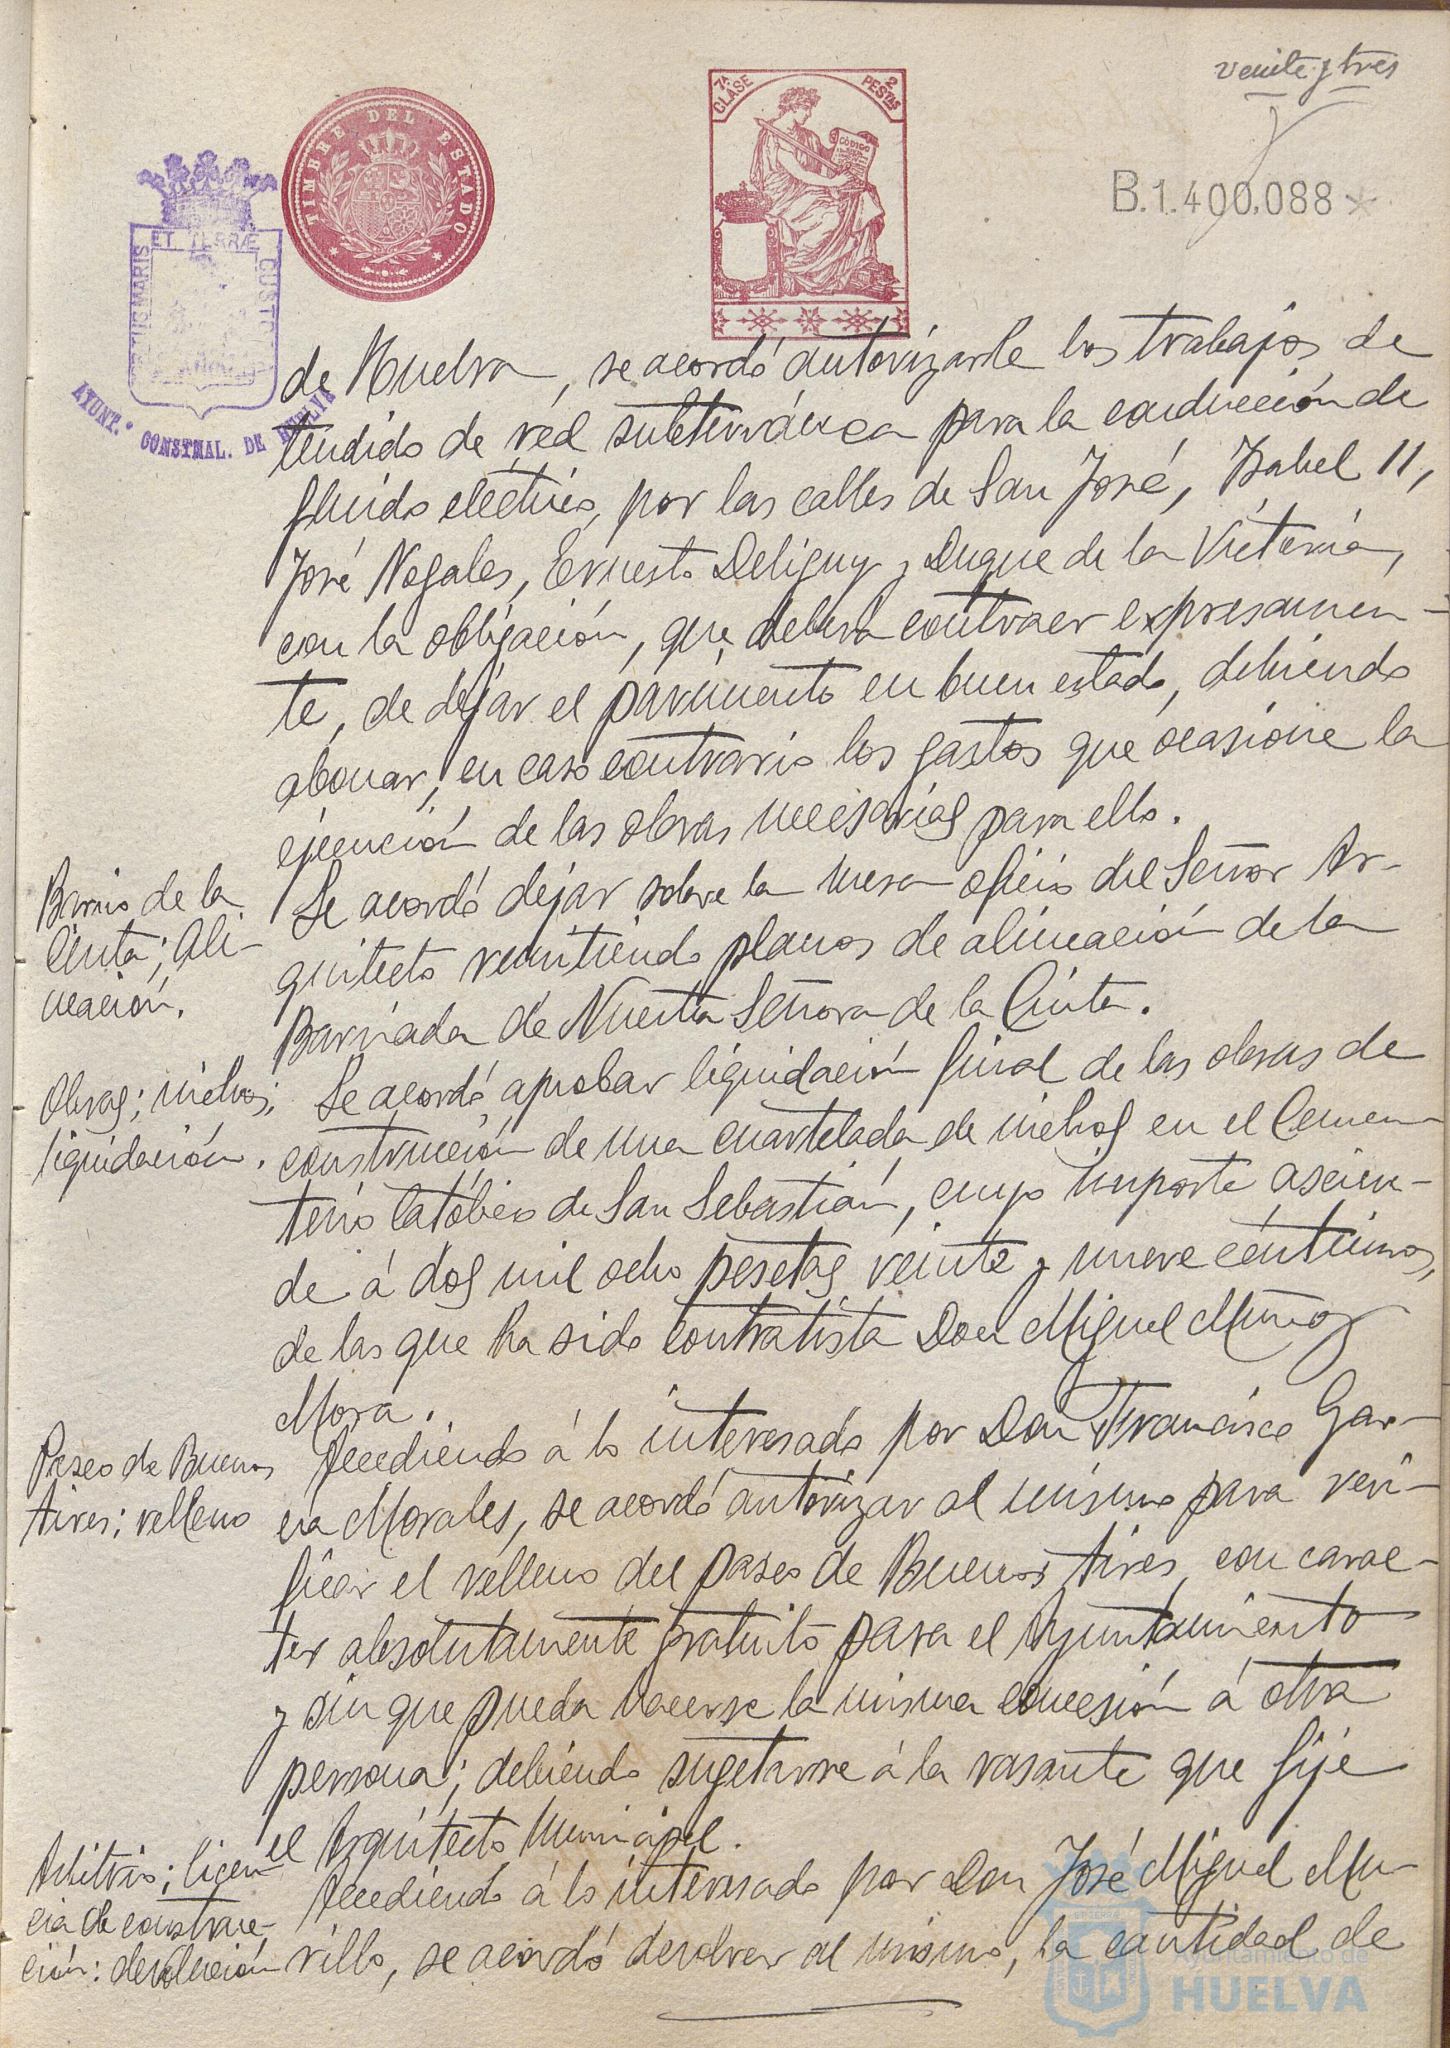 veinte y tres
TIMBRE DEL ESTADO
7ª CLASE
2 PESTAS
CÓDIGO
B.1.400,088*
ET TERRÆ
MARIS
AYUNT.º CONSTNAL. DE HUELVA
de Huelva, se acordó autorizarle los trabajos de
tendido de red subterránea para la conducción de
fluido eléctrico, por las calles de San José, Isabel II,
José Nogales, Ernesto Deligny y Duque de la Victoria,
con la obligación, que deberá contraer expresamen-
te, de dejar el pavimento en buen estado, debiendo
abonar, en caso contrario los gastos que ocasione la
ejecución de las obras necesarias para ello.
Barrio de la
Cinta; Ali-
neación.
Se acordó dejar sobre la mesa oficio del Señor Ar-
quitecto remitiendo planos de alineación de la
Barriada de Nuestra Señora de la Cinta.
Obras; nichos;
liquidación.
Se acordó aprobar liquidación final de las obras de
construcción de una cuartelada de nichos en el Cemen-
terio Católico de San Sebastián, cuyo importe ascien-
de á dos mil ocho pesetas veinte y nueve céntimos,
de las que ha sido contratista Don Miguel Muñoz
Mora.
Paseo de Buenos
Aires; relleno
Accediendo á lo interesado por Don Francisco Gar-
cía Morales, se acordó autorizar al mismo para veri-
ficar el relleno del paseo de Buenos Aires, con carac-
ter absolutamente gratuito para el Ayuntamiento
y sin que pueda hacerse la misma concesión á otra
persona; debiendo sugetarse á la rasante que fije
el Arquitecto Municipal.
Arbitrio; licen-
cia de construc-
ción: devolución
Accediendo á lo interesado por Don José Miguel Mu-
rillo, se acordó devolver al mismo, la cantidad de
Ayuntamiento de
HUELVA